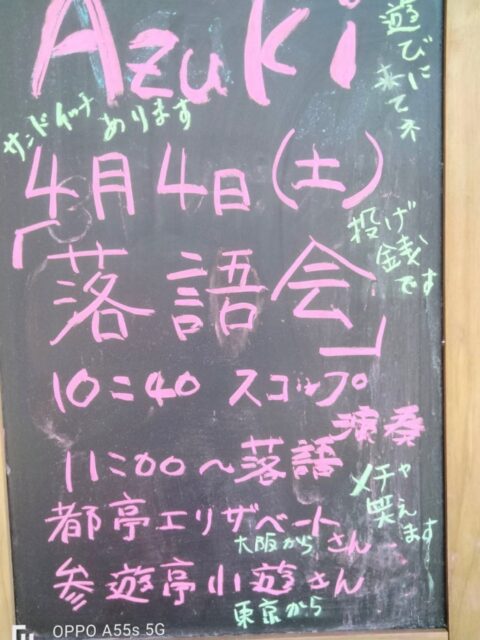 Azuki
遊びに
来てネ
サンドイッチ
あります
4月4日(土)
「落語会」
投げ
銭
です
10:40 スコップ
演奏
11:00〜落語
メチャ
笑え
ます
都亭エリザベート
大阪から さん
参遊亭小遊さん
東京から
OPPO A55s 5G